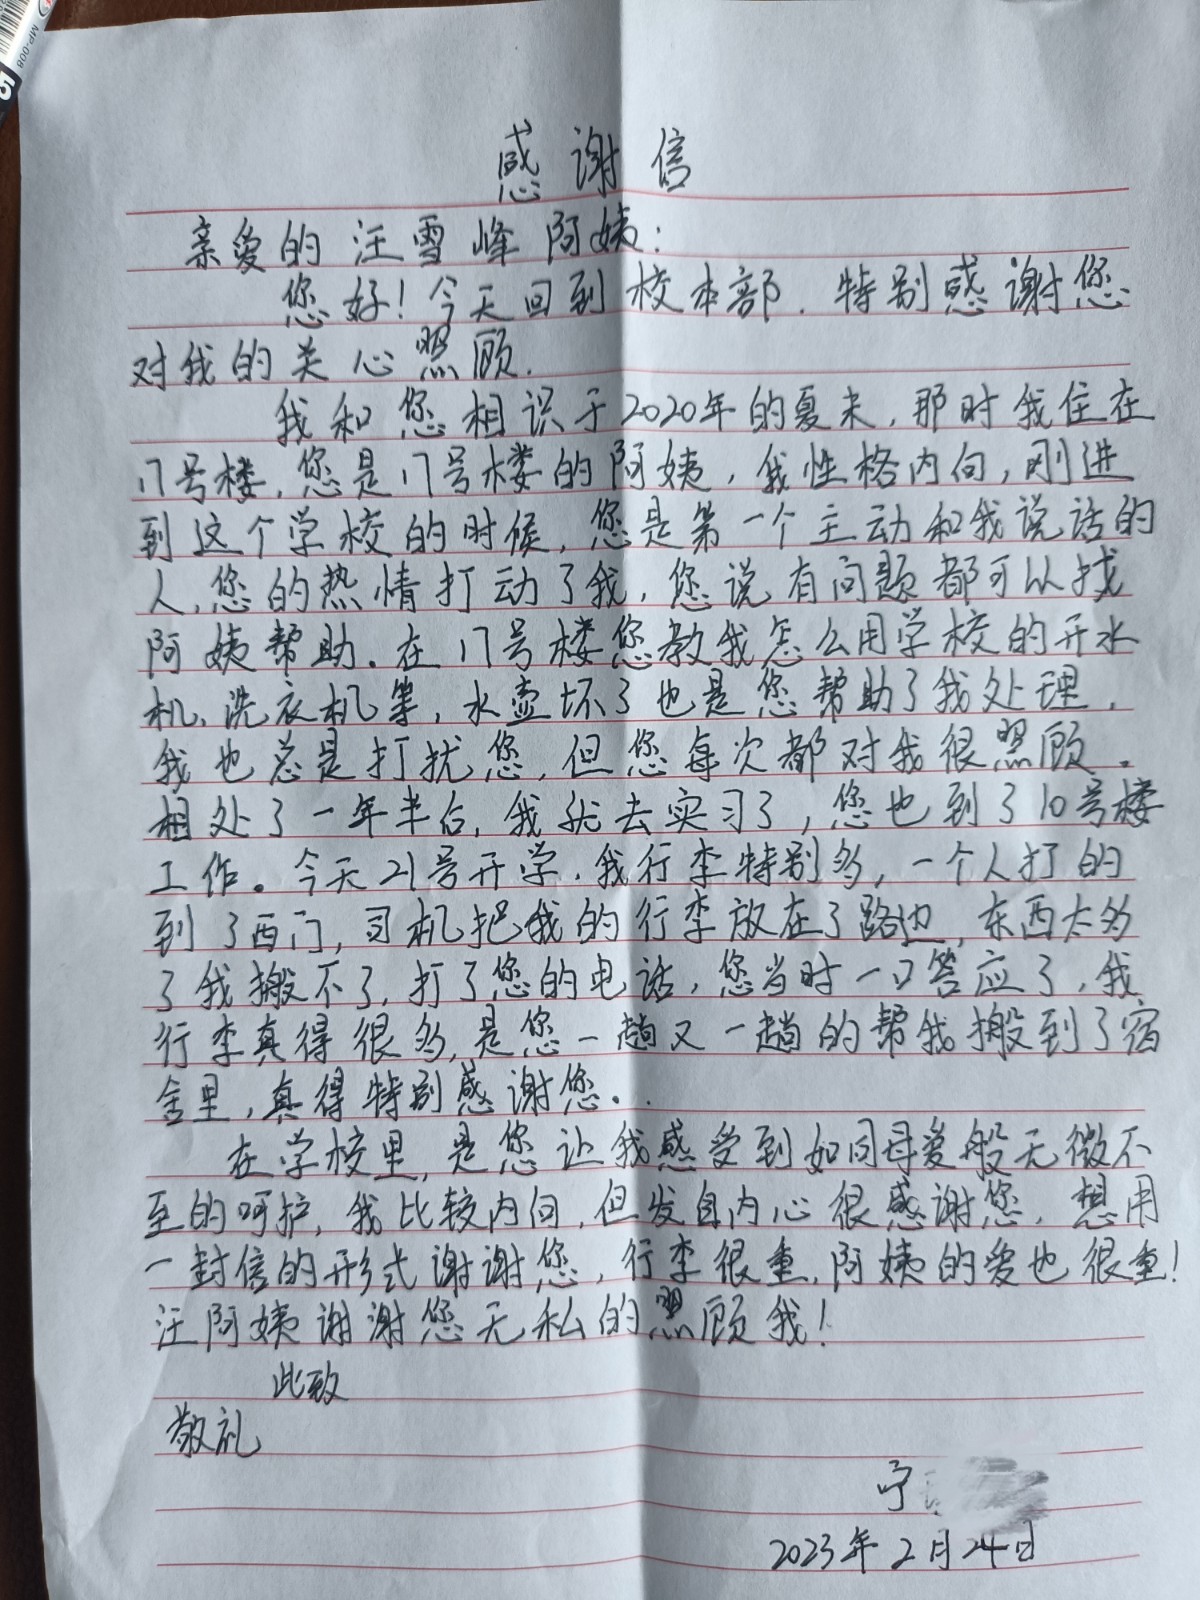 MP-008
感谢信
亲爱的汪雪峰阿姨:
您好!今天回到校本部,特别感谢您
对我的关心照顾.
我和您相识于2020年的夏末,那时我住在
17号楼,您是17号楼的阿姨,我性格内向,刚进
到这个学校的时候,您是第一个主动和我说话的
人,您的热情打动了我,您说有问题都可以找
阿姨帮助.在17号楼您教我怎么用学校的开水
机、洗衣机等,水壶坏了也是您帮助了我处理,
我也总是打扰您,但您每次都对我很照顾.
相处了一年半后,我就去实习了,您也到了10号楼
工作。今天21号开学,我行李特别多,一个人打的
到了西门,司机把我的行李放在了路边,东西太多
了我搬不了,打了您的电话,您当时一口答应了,我
行李真得很多,是您一趟又一趟的帮我搬到了宿
舍里,真得特别感谢您..
在学校里,是您让我感受到如同母爱般无微不
至的呵护,我比较内向,但发自内心很感谢您,想用
一封信的形式谢谢您,行李很重,阿姨的爱也很重!
汪阿姨谢谢您无私的照顾我!
此致
敬礼
宁
2023年2月24日